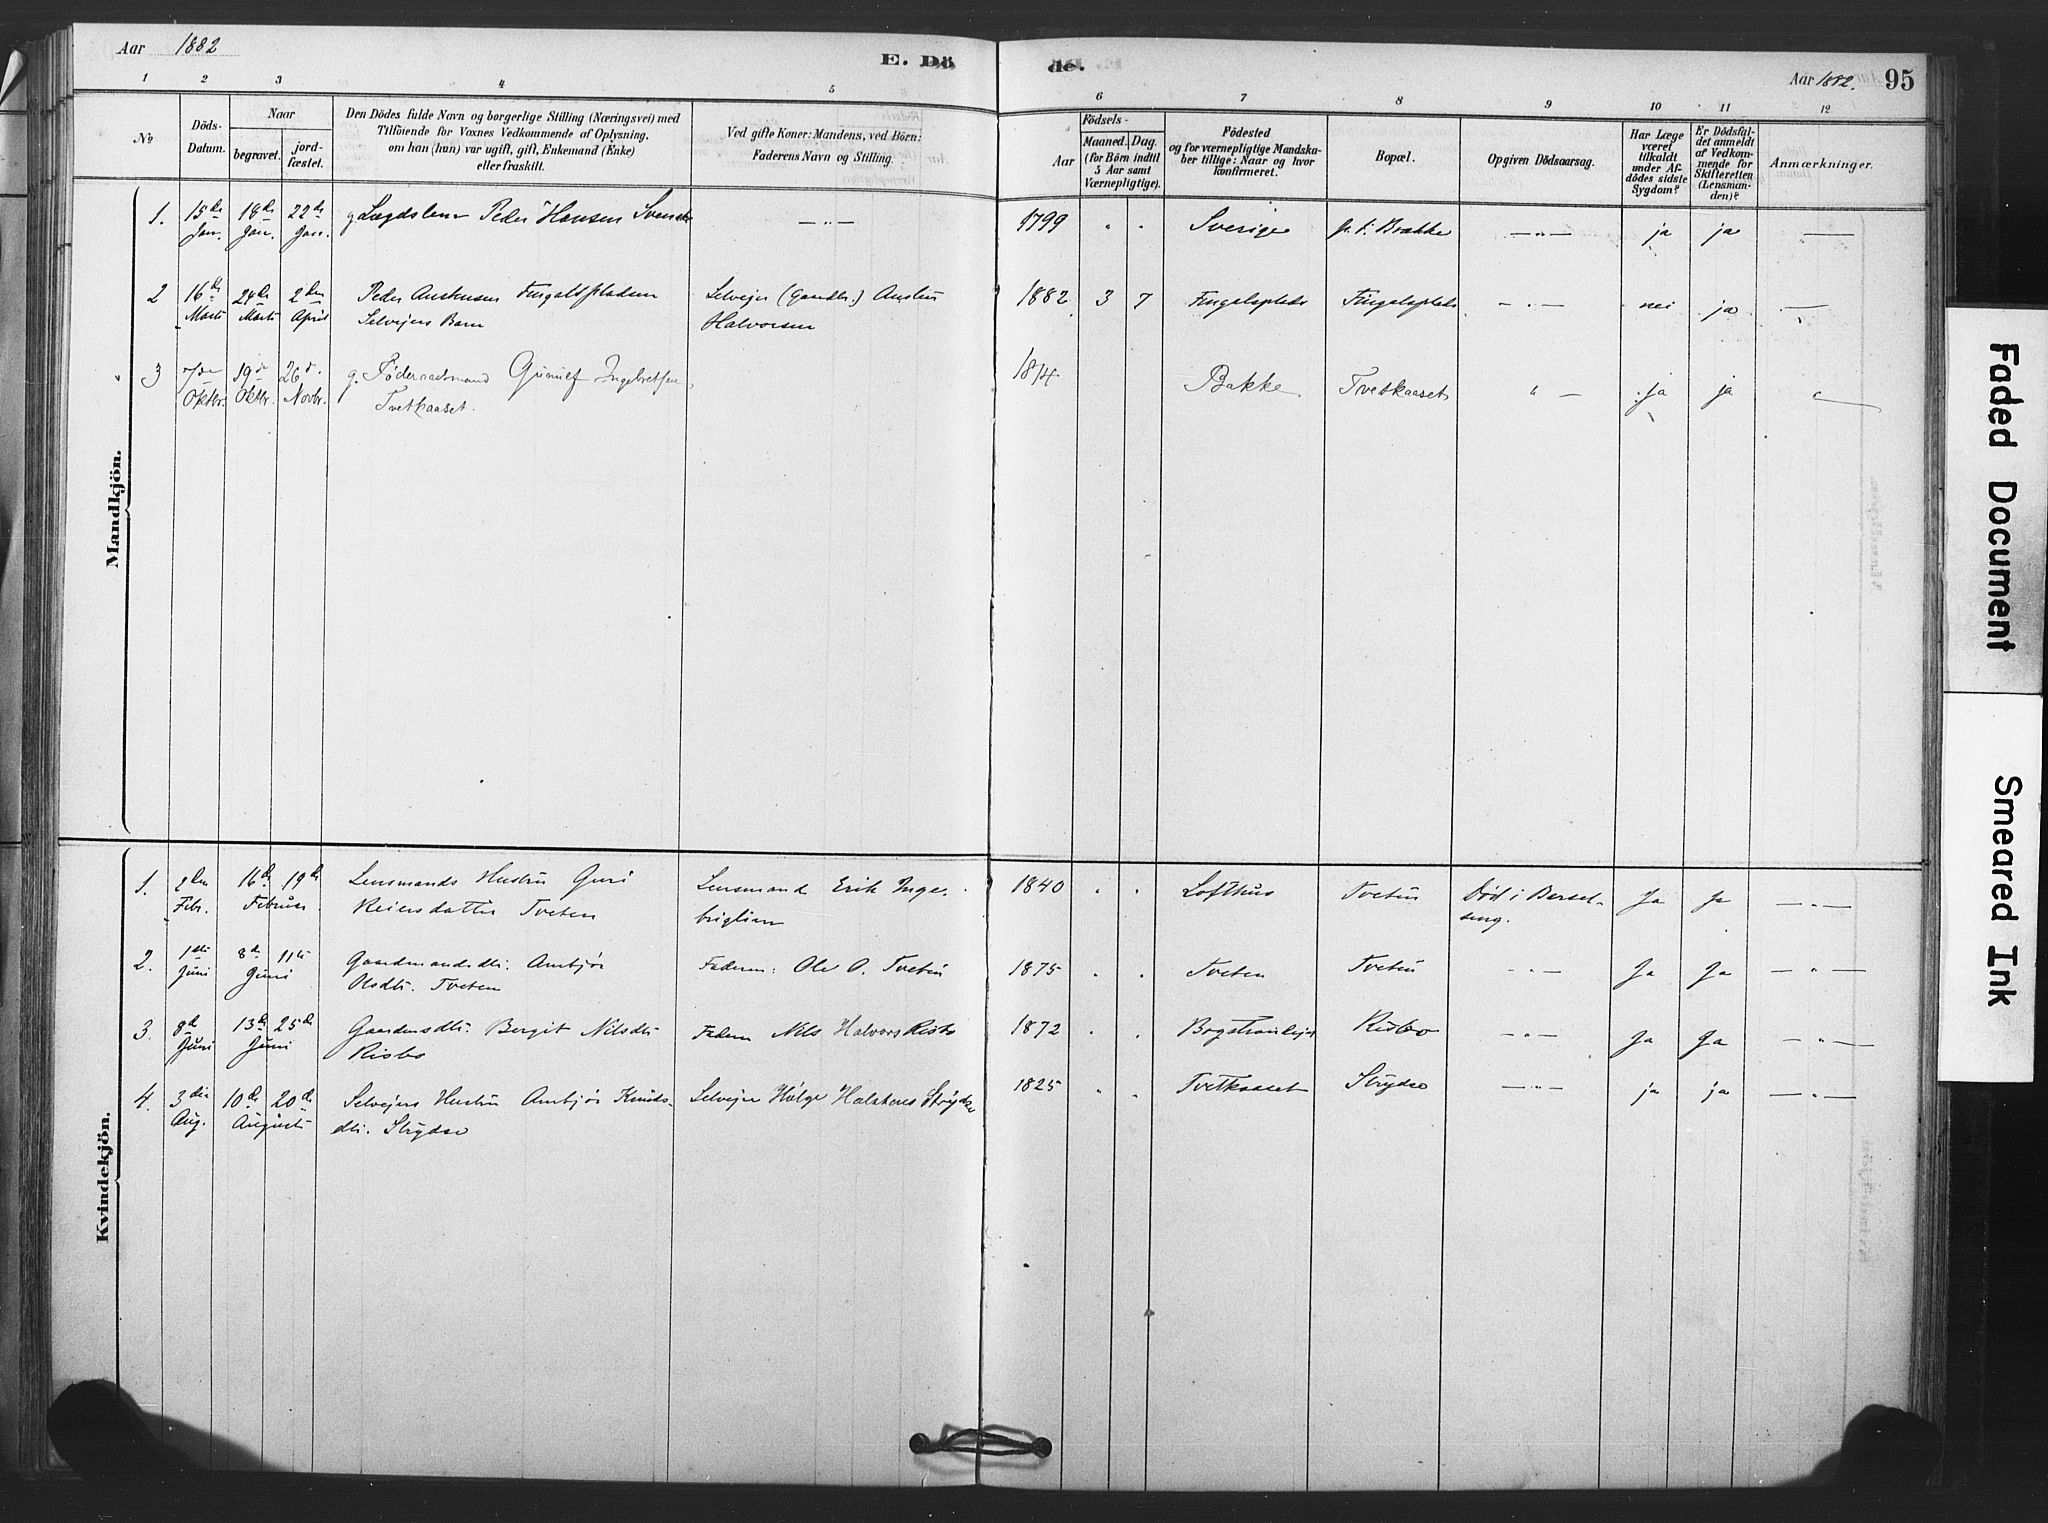 Aar 1882
E. Döde.
Aar 1882. 95
1 2 3 4 5 6 7 8 9 10 11 12
No
Döds-Datum.
Naar
begravet.
jordfæstet.
Den Dödes fulde Navn og borgerlige Stilling (Næringsvei) med
Tilföiende for Voxnes Vedkommende af Oplysning,
om han (hun) var ugift, gift, Enkemand (Enke)
eller fraskilt.
Ved gifte Koner: Mandens, ved Börn:
Faderens Navn og Stilling.
Födsels-
Aar
Maaned. Dag.
(for Börn indtil
5 Aar samt
Værnepligtige).
Födested
og for værnepligtige Mandskaber tillige: Naar og hvor
konfirmeret.
Bopæl.
Opgiven Dödsaarsag.
Har Læge
været
tilkaldt
under Afdödes sidste
Sygdom?
Er Dödsfaldet anmeldt
af Vedkommende for
Skifteretten
(Lensmanden)?
Anmærkninger.
Mandkjön.
1. 15de Jan. 18de Jan. 22de Jan. g. Lægdslem Peder Hansen Svensk — " — 1799 " " Sverige p. t. Brække — " — ja ja —
2 16de Marts 24de Marts 2den April Peder Austensen Fingalspladsen Selveier (Gaardbr.) Austen 1882 3 7 Fingalsplads Fingalsplads — " — nei ja —
Selveiers Barn Halvorsen
3 7de Oktbr. 19de Oktbr. 26de Novbr. g. Föderaadsmand Gunulf Ingebretsen 1814 Bakke Tvetkaaset " — ja ja
Tvetkaaset.
Kvindekjön.
1. 2den Febr. 16de 19de Februar Lensmands Hustru Guri Lensmand Erik Inge- 1840 " " Lofthus Tveten Död i Barsel- Ja Ja — " —
Reiersdatter Tveten brigtsen seng.
2. 1ste Juni 8de 11te Juni Gaardmandsdtr. Ambjør Faderen: Ole O. Tveten 1875 " " Tveten Tveten — " — Ja Ja — " —
Olsdtr. Tveten
3. 8de Juni 13de 25de Juni Gaardmsdtr. Bergit Nilsdtr. Faderen Nils Halvors Risbo 1872 " " Risbo — " — Ja Ja — " —
Risbo
4. 3die Aug. 10de 20de Augusti Selveiers Hustru Ambjør Knuds- Selveier Helge Halvors 1825 " " Tvetkaaset — " — ja ja — " —
dtr.
Faded Document
Smeared Ink